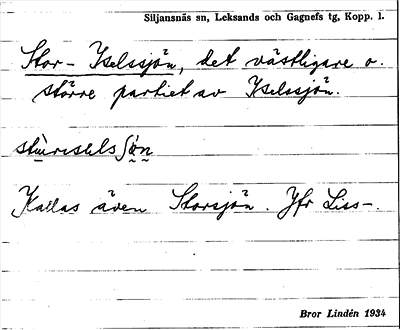 Siljansnäs sn, Leksands och Gagnefs tg, Kopp. l.
Stor-Yselssjön, det västligare o.
större partiet av Yselssjön.
Kallas även Storsjön. Jfr Liss-.
Bror Lindén 1934